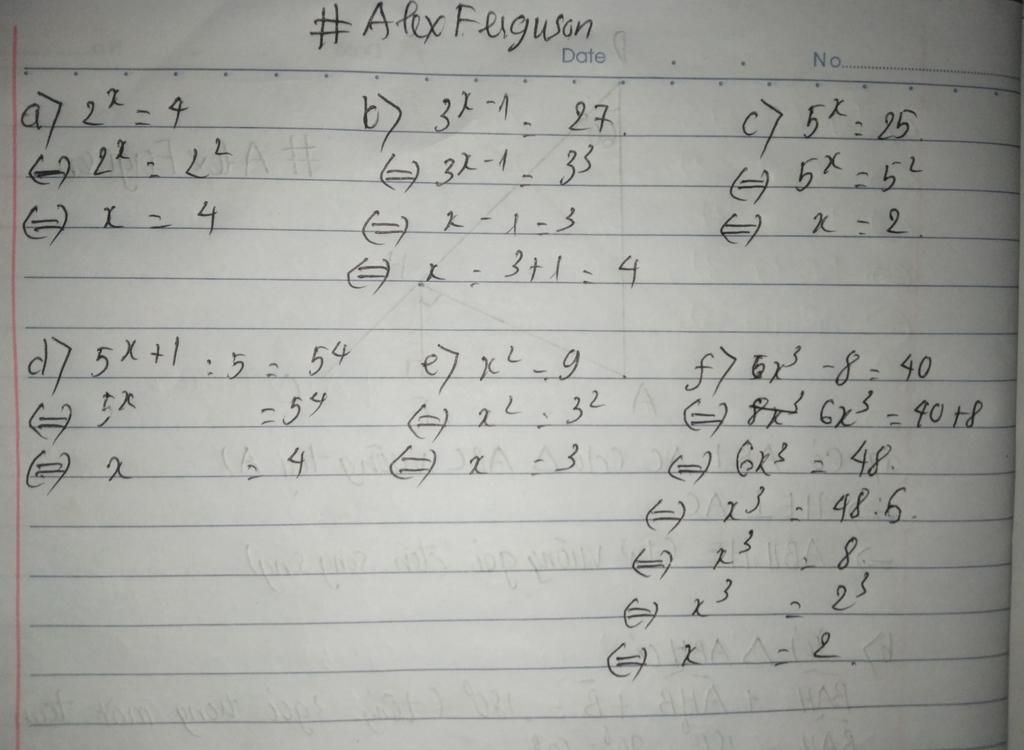 # Alex Ferguson
Date No
a) 2^x = 4
(=) 2^x = 2^2
(=) x = 4
b) 3^x-1 = 27.
(=) 3^x-1 = 3^3
(=) x - 1 = 3
(=) x = 3+1 = 4
c) 5^x = 25
(=) 5^x = 5^2
(=) x = 2.
d) 5^x+1 : 5 = 5^4
(=) 5^x = 5^4
(=) x = 4
e) x^2 = 9
(=) x^2 = 3^2
(=) x = 3
f) 6x^3 - 8 = 40
(=) 8x^3 6x^3 = 40+8
(=) 6x^3 = 48.
(=) x^3 = 48:6.
(=) x^3 = 8
(=) x^3 = 2^3
(=) x = 2.